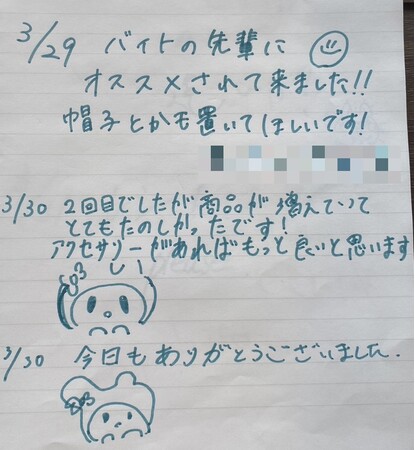 3/29 バイトの先輩に
オススメされて来ました!!
帽子とかも置いてほしいです!
3/30 2回目でしたが商品が増えていって
とてもたのしかったです!
アクセサリーがあればもっと良いと思います
3/30 今日もありがとうございました.